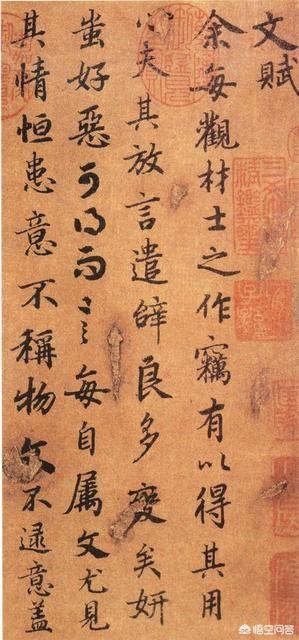 文賦
余每觀材士之作竊有以得其用
心夫其放言遣辭良多變矣妍
蚩好惡可得而言每自属文尤見
其情恒患意不稱物文不逮意蓋
悟空问答